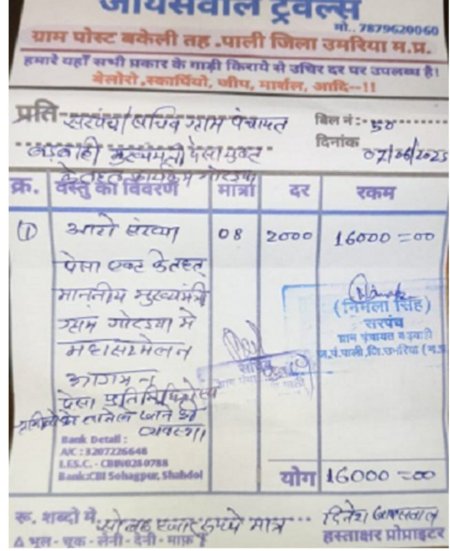 जायसवाल ट्रेवल्स
मो. 7879620060
ग्राम पोस्ट बकेली तह .पाली जिला उमरिया म.प्र.
हमारे यहाँ सभी प्रकार के गाड़ी किराये से उचिर दर पर उपलब्ध है।
बेलोरो,स्कार्पियो, जीप, मार्शल, आदि--!!
प्रति सरपंच/सचिव ग्राम पंचायत
बिल नं:- 50
दिनांक
मुख्यमंत्री पेसा
क्र. वस्तु का विवरण मात्रा दर रकम
① संख्या 08 2000 16000=00
पेसा एक्ट के तहत
माननीय मुख्यमंत्री
ग्राम गोरइया में
महासम्मेलन
आगमन
पेसा
व्यवस्था
(निर्मला सिंह)
सरपंच
ग्राम पंचायत
ज.पं.पाली,जि.उमरिया (म.प्र.
सचिव
ग्राम पंचायत
Bank Detail :
A/C : 3207226648
I.F.S.C. - CBIN0280788
Bank:CBI Sohagpur, Shahdol
योग 16000=00
रू. शब्दों में सोलह हजार रुपये मात्र
दिनेश जायसवाल
∆ भूल - चूक - लेनी - देनी - माफ़
हस्ताक्षर प्रोप्राइटर